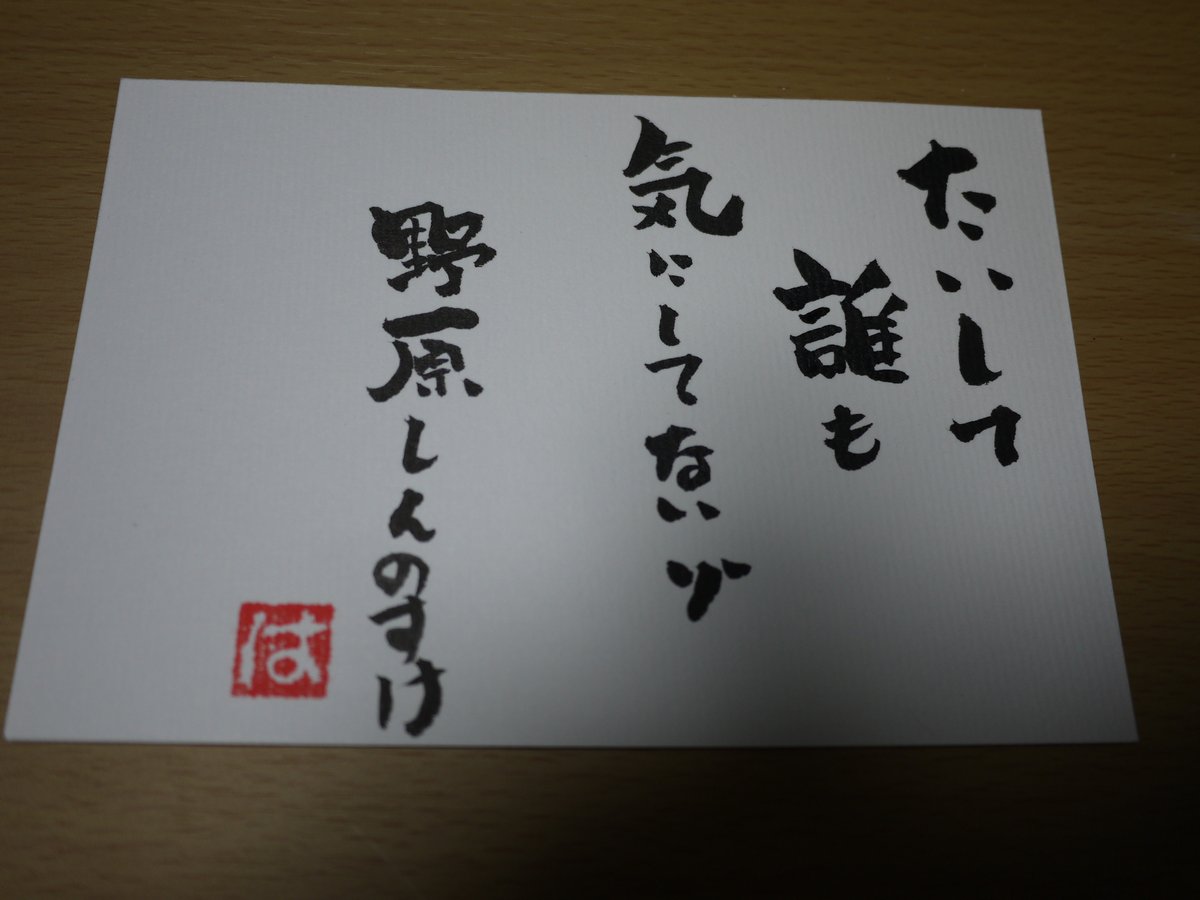 たいして
誰も
気にしてないゾ
野原しんのすけ
は